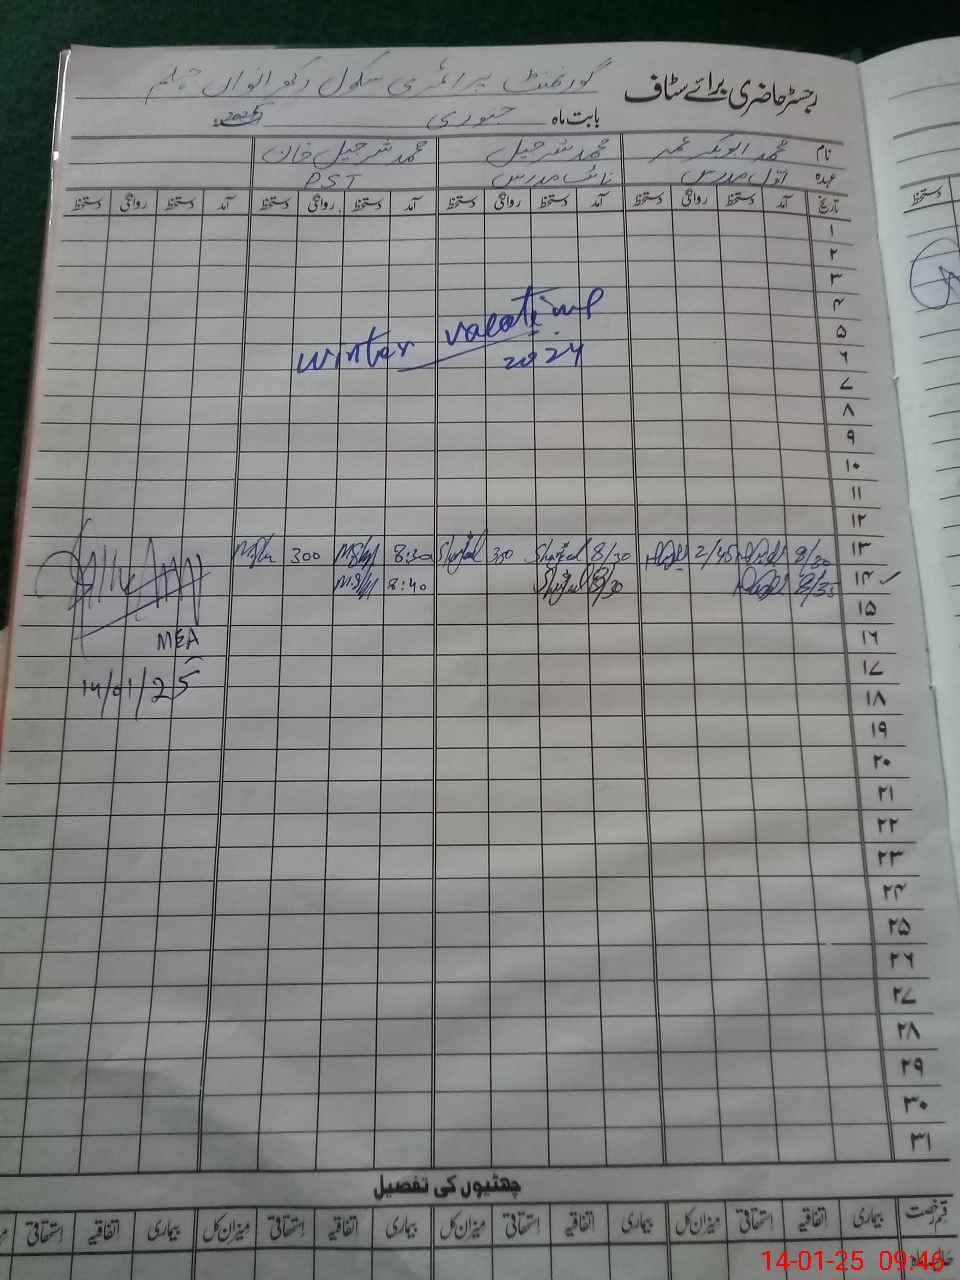 رجسٹر حاضری برائے سٹاف گورنمنٹ پرائمری سکول رکھ انواں جہلم
بابت ماہ جنوری 2025
نام محمد ابوبکر عمر محمد شرجیل محمد شرجیل خان
عہدہ اول مدرس نائب مدرس PST
تاریخ آمد دستخط روانگی دستخط آمد دستخط روانگی دستخط آمد دستخط روانگی دستخط آمد دستخط روانگی دستخط
۱
۲
۳
۴
۵
winter vacations
۶
2024
۷
۸
۹
۱۰
۱۱
۱۲
۱۳ 8/30 2/45 8/30 Sharjeel 300 Sharjeel 8:30 300
۱۴ 8/35 8/30 Sharjeel 8:40
۱۵
۱۶
MEA
۱۷
14/01/25
۱۸
۱۹
۲۰
۲۱
۲۲
۲۳
۲۴
۲۵
۲۶
۲۷
۲۸
۲۹
۳۰
۳۱
چھٹیوں کی تفصیل
قسم رخصت بیماری اتفاقیہ استحقاقی میزان کل بیماری اتفاقیہ استحقاقی میزان کل بیماری اتفاقیہ استحقاقی میزان کل بیماری اتفاقیہ استحقاقی
14-01-25 09:46